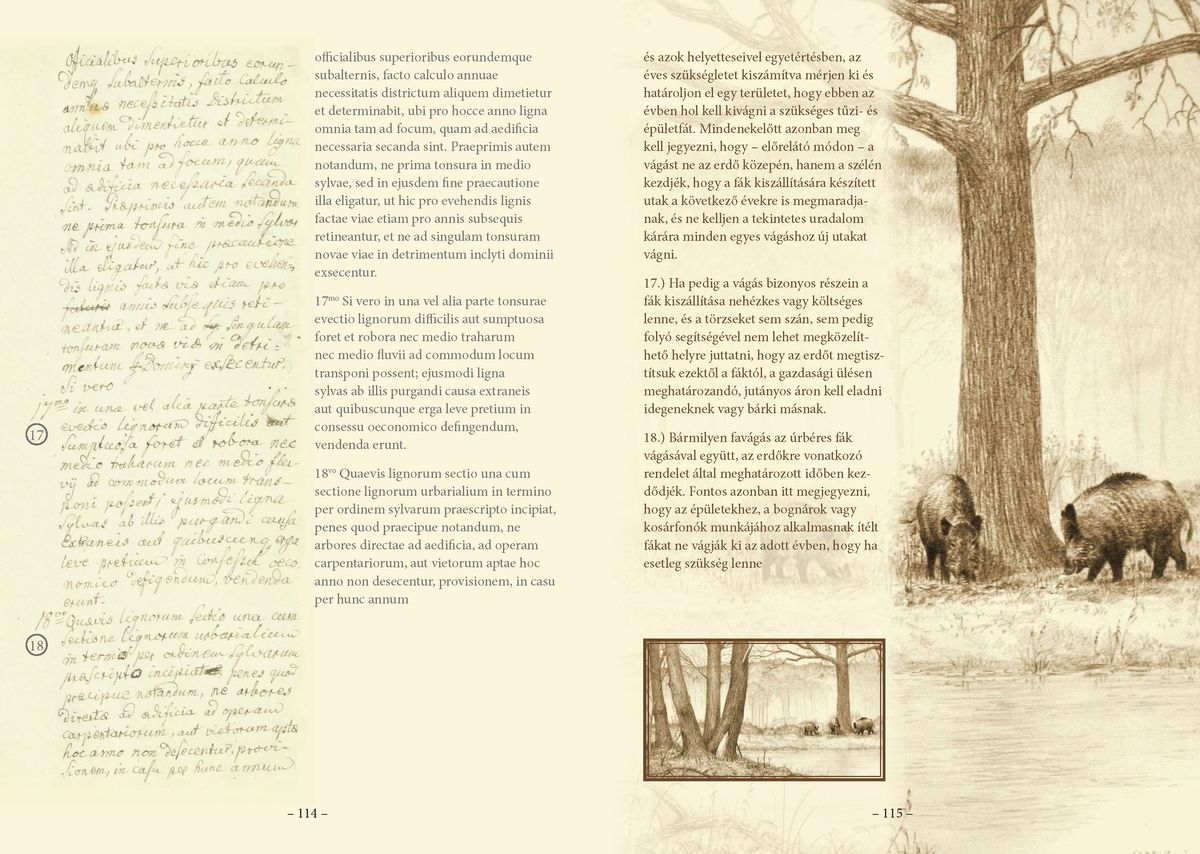 Officialibus Superioribus eorun-
demq Subalternis, facto Calculo
annuae necessitatis Districtum
aliquem dimentietur et determi-
nabit ubi pro hocce anno ligna
omnia tam ad focum, quam
ad ædificia necessaria Secanda
sint. Præprimis autem notandum
ne prima tonsura in medio Sylvæ
sed in ejusdem fine præcautione
illa eligatur, ut hic pro evehen-
dis lignis factæ viæ etiam pro
annis Subsequis reti-
neantur, et ne ad Singulam
tonsuram novæ viæ in detri-
mentum Dominy exsecentur.
Si vero
17mo in una vel alia parte tonsuræ
evectio lignorum difficilis aut
17
Sumptuosa foret et robora nec
medio traharum nec medio flu-
vij ad commodum locum trans-
poni possent; ejusmodi ligna
Sylvas ab illis purgandi causa
Extraneis aut quibuscunq erga
leve pretium in Consessu oeco-
nomico defigendum, vendenda
erunt.
18vo Quævis lignorum Sectio una cum
Sectione lignorum urbarialium
18
in termino per ordinem Sylvarum
præscripto incipiat penes quod
præcipue notandum, ne arbores
directæ ad ædificia ad operam
carpentariorum, aut vietorum aptæ
hoc anno non desecentur, provi-
sionem, in casu per hunc annum
officialibus superioribus eorundemque
subalternis, facto calculo annuae
necessitatis districtum aliquem dimetietur
et determinabit, ubi pro hocce anno ligna
omnia tam ad focum, quam ad aedificia
necessaria secanda sint. Praeprimis autem
notandum, ne prima tonsura in medio
sylvae, sed in ejusdem fine praecautione
illa eligatur, ut hic pro evehendis lignis
factae viae etiam pro annis subsequis
retineantur, et ne ad singulam tonsuram
novae viae in detrimentum inclyti dominii
exsecentur.
17mo Si vero in una vel alia parte tonsurae
evectio lignorum difficilis aut sumptuosa
foret et robora nec medio traharum
nec medio fluvii ad commodum locum
transponi possent; ejusmodi ligna
sylvas ab illis purgandi causa extraneis
aut quibuscunque erga leve pretium in
consessu oeconomico defingendum,
vendenda erunt.
18vo Quaevis lignorum sectio una cum
sectione lignorum urbarialium in termino
per ordinem sylvarum praescripto incipiat,
penes quod praecipue notandum, ne
arbores directae ad aedificia, ad operam
carpentariorum, aut vietorum aptae hoc
anno non desecentur, provisionem, in casu
per hunc annum
– 114 –
és azok helyetteseivel egyetértésben, az
éves szükségletet kiszámítva mérjen ki és
határoljon el egy területet, hogy ebben az
évben hol kell kivágni a szükséges tűzi- és
épületfát. Mindenekelőtt azonban meg
kell jegyezni, hogy – előrelátó módon – a
vágást ne az erdő közepén, hanem a szélén
kezdjék, hogy a fák kiszállítására készített
utak a következő évekre is megmaradja-
nak, és ne kelljen a tekintetes uradalom
kárára minden egyes vágáshoz új utakat
vágni.
17.) Ha pedig a vágás bizonyos részein a
fák kiszállítása nehézkes vagy költséges
lenne, és a törzseket sem szán, sem pedig
folyó segítségével nem lehet megközelít-
hető helyre juttatni, hogy az erdőt megtisz-
títsuk ezektől a fáktól, a gazdasági ülésen
meghatározandó, jutányos áron kell eladni
idegeneknek vagy bárki másnak.
18.) Bármilyen favágás az úrbéres fák
vágásával együtt, az erdőkre vonatkozó
rendelet által meghatározott időben kez-
dődjék. Fontos azonban itt megjegyezni,
hogy az épületekhez, a bognárok vagy
kosárfonók munkájához alkalmasnak ítélt
fákat ne vágják ki az adott évben, hogy ha
esetleg szükség lenne
– 115 –